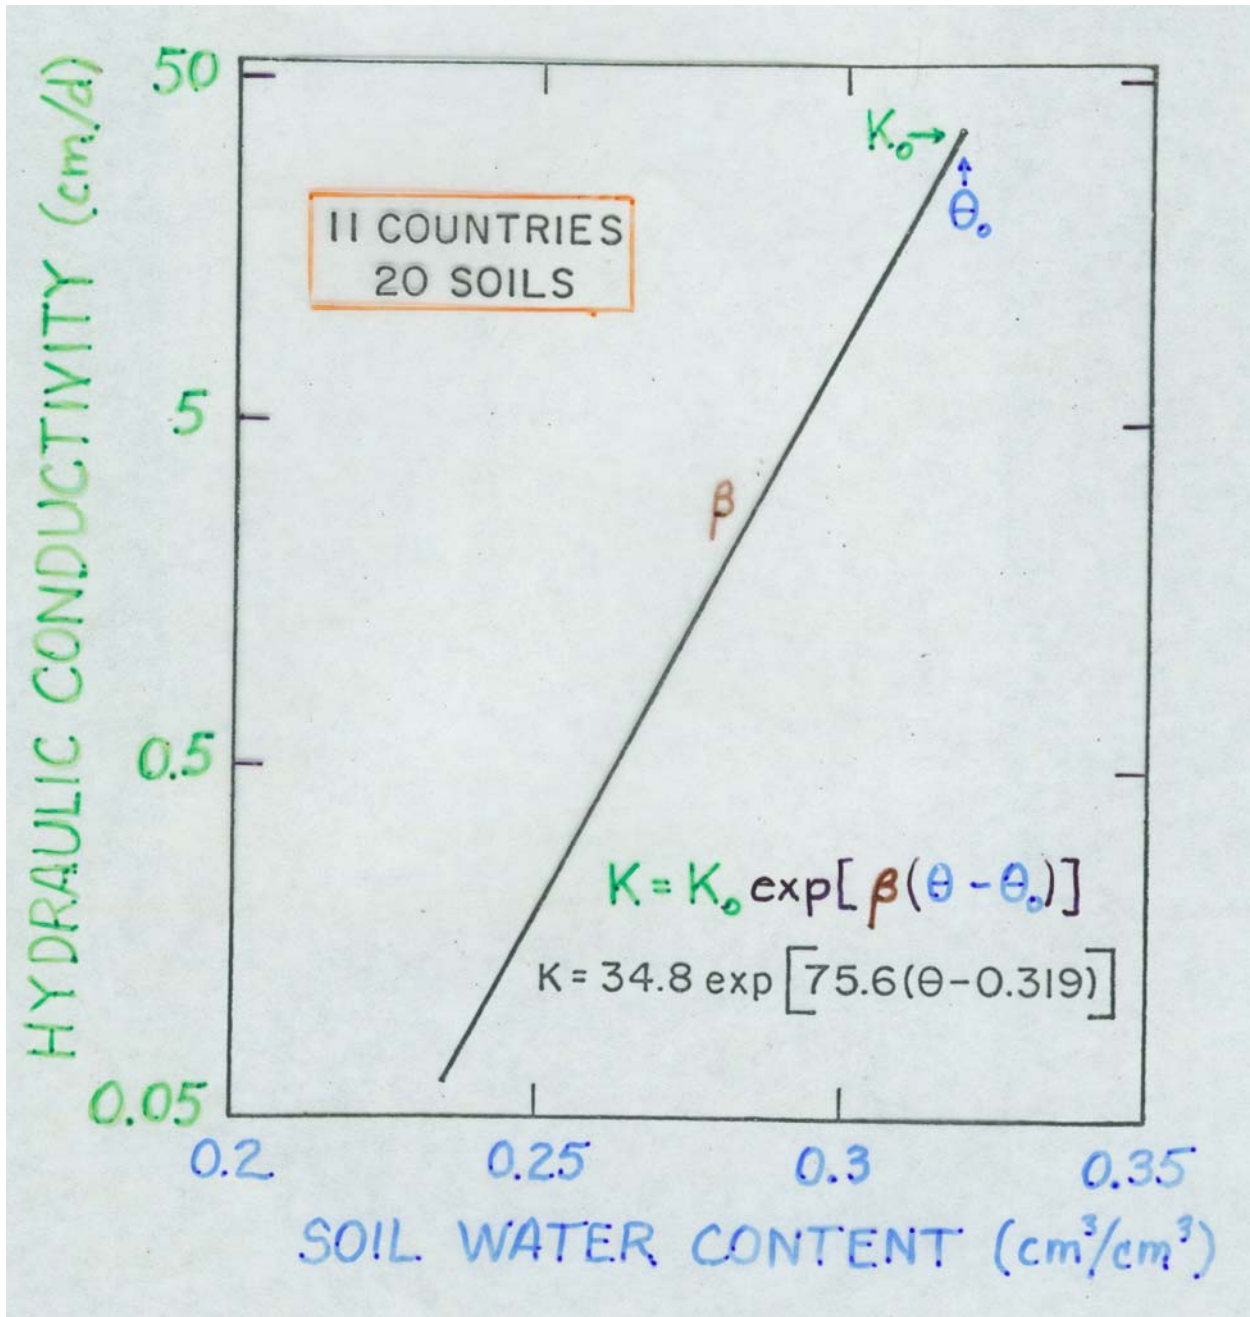 HYDRAULIC CONDUCTIVITY (cm/d)
50
5
0.5
0.05
11 COUNTRIES
20 SOILS
K₀→
↑
θ₀
β
K = K₀ exp[β(θ - θ₀)]
K = 34.8 exp[75.6(θ-0.319)]
0.2 0.25 0.3 0.35
SOIL WATER CONTENT (cm³/cm³)